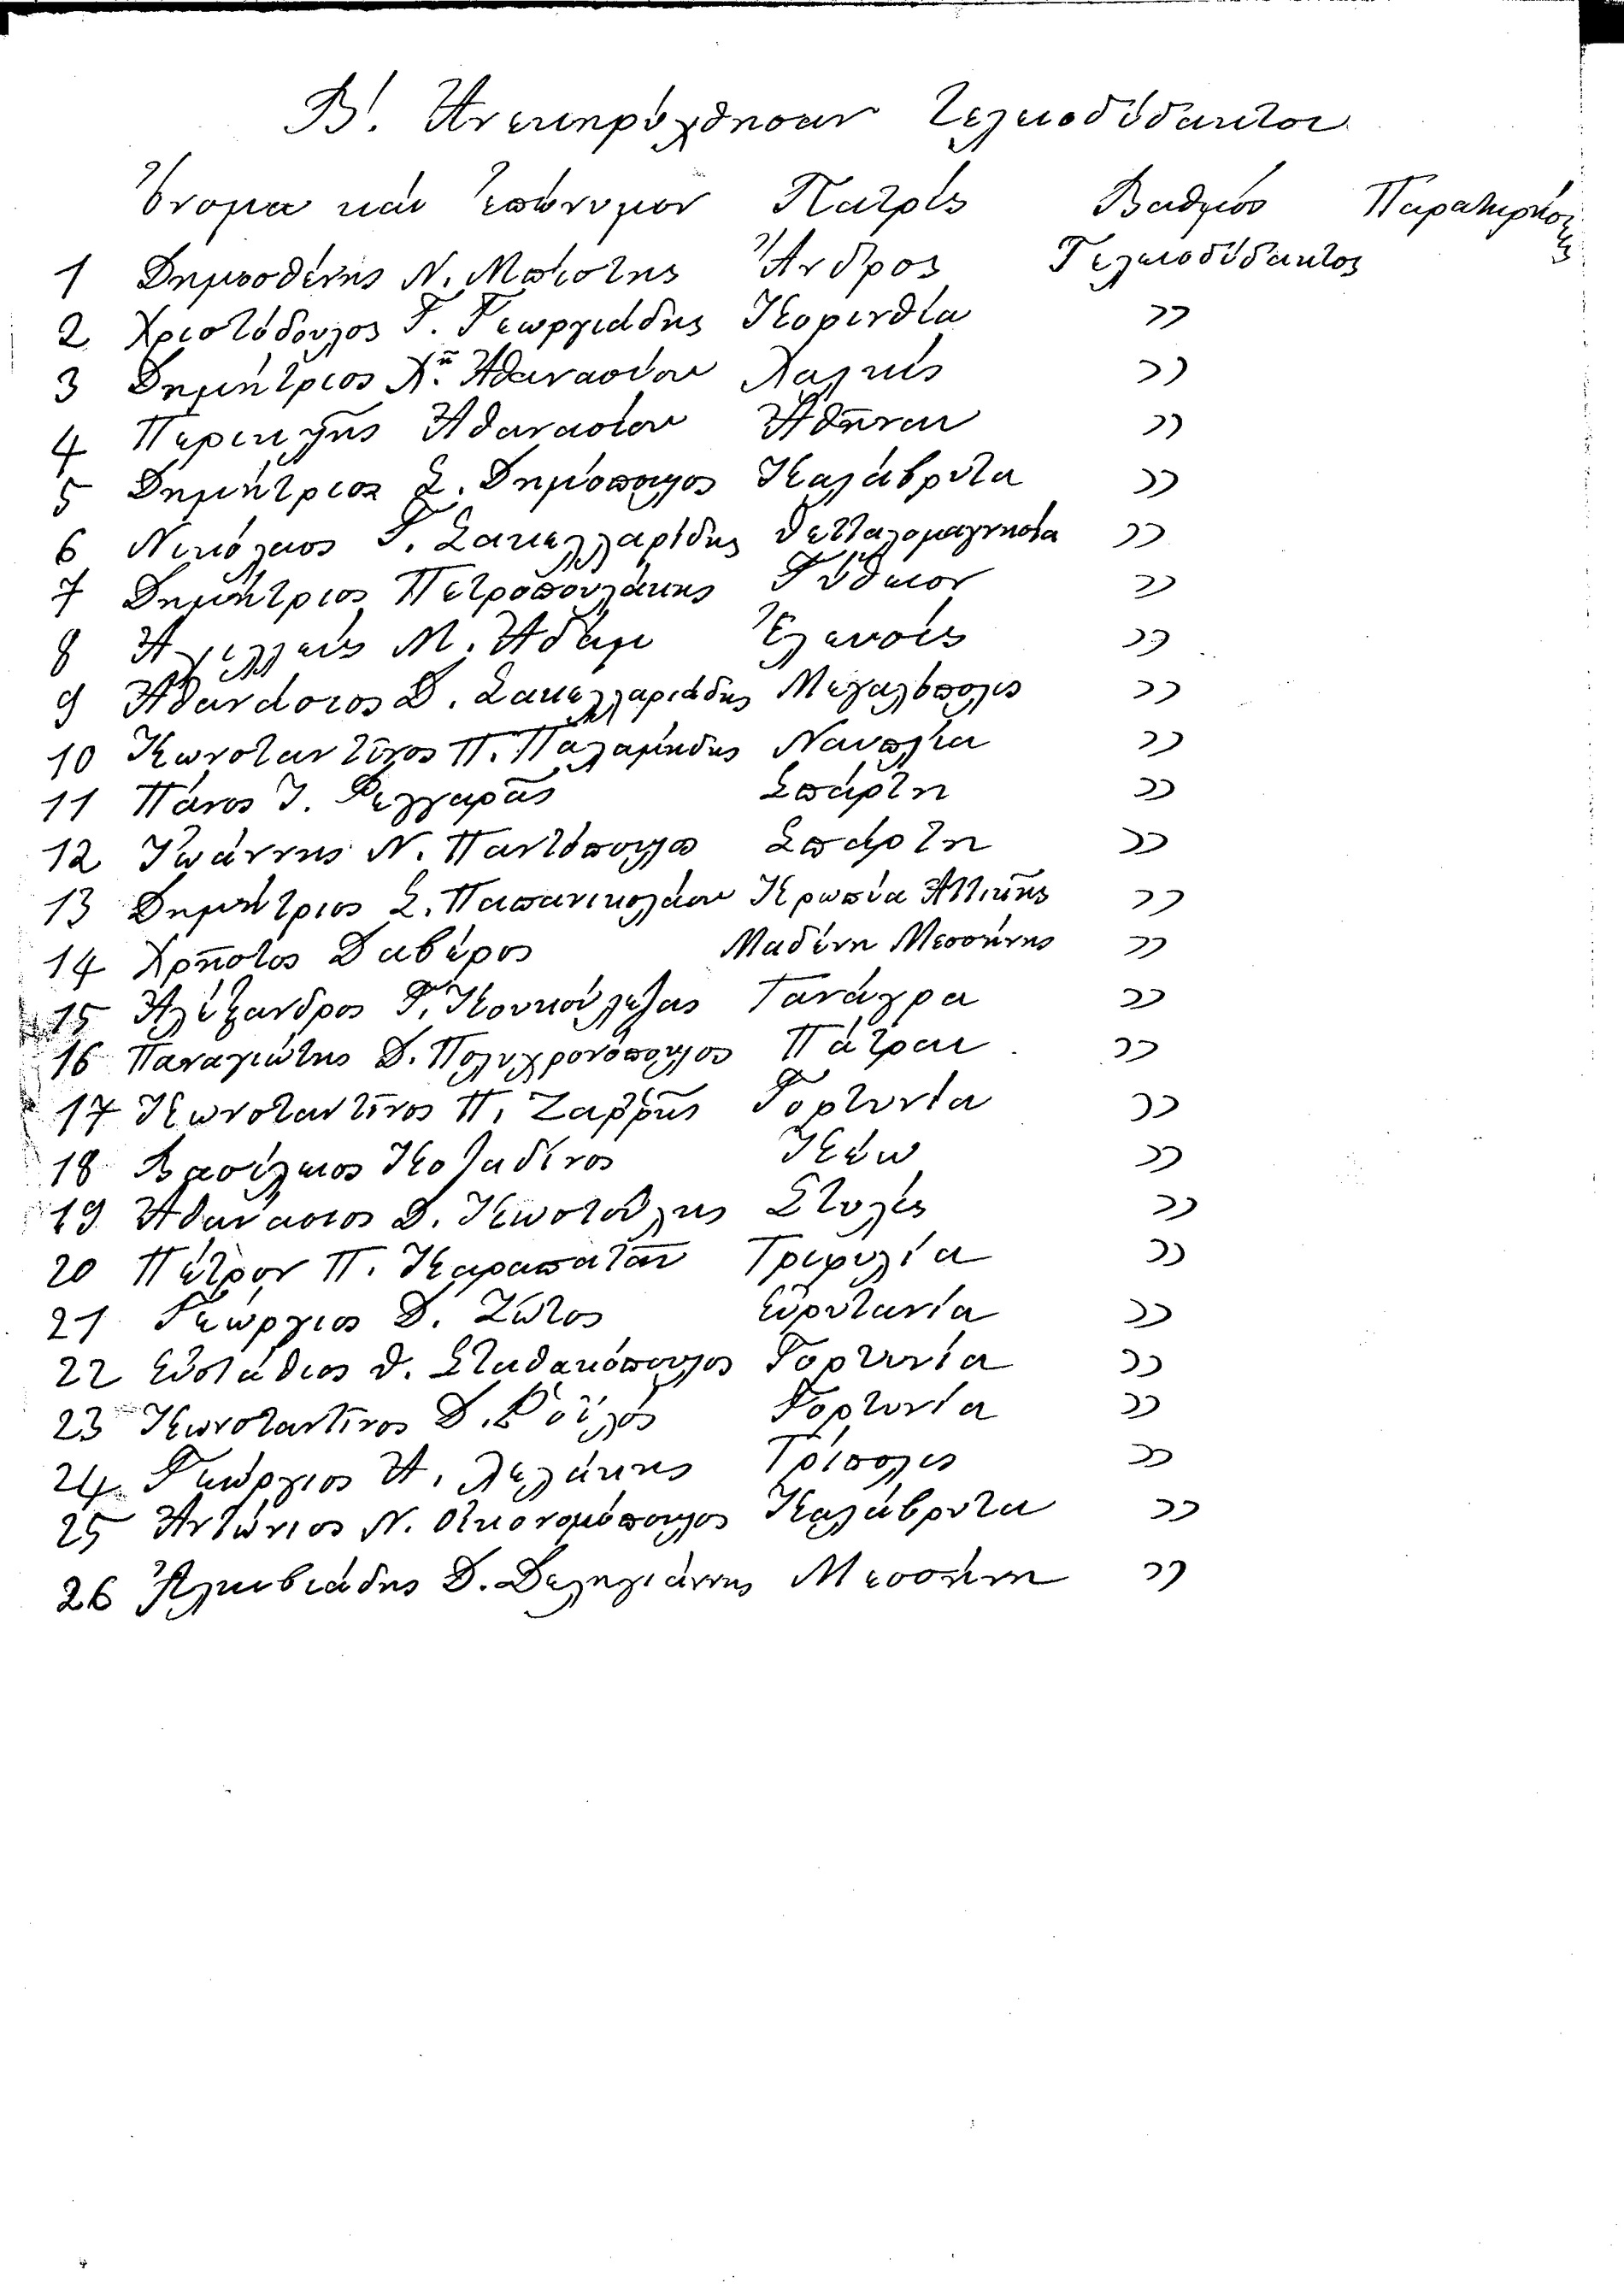 Β'. Ἀνεκηρύχθησαν τελειοδίδακτοι
Ὄνομα καὶ ἐπώνυμον Πατρίς Βαθμός Παρατηρήσεις
1 Δημοσθένης Ν. Μπίστης Ἄνδρος Τελειοδίδακτος
2 Χριστόδουλος Γ. Γεωργιάδης Κορινθία »
3 Δημήτριος Χ" Ἀθανασίου Χαλκίς »
4 Περικλῆς Ἀθανασίου Ἀθῆναι »
5 Δημήτριος Σ. Δημόπουλος Καλάβρυτα »
6 Νικόλαος Γ. Σακελλαρίδης Θετταλομαγνησία »
7 Δημήτριος Πετροπουλάκης Γύθειον »
8 Ἀχιλλεύς Μ. Ἀδάμ Ἐλευσίς »
9 Ἀθανάσιος Δ. Σακελλαριάδης Μεγαλόπολις »
10 Κωνσταντῖνος Π. Παλαμήδης Ναυπλία »
11 Πάνος Ἰ. Φεγγαρᾶς Σπάρτη »
12 Ἰωάννης Ν. Παντόπουλο Σπάρτη »
13 Δημήτριος Σ. Παπανικολάου Κρωπία Ἀττικῆς »
14 Χρῆστος Δαβέρος Μαδένη Μεσσήνης »
15 Ἀλέξανδρος Γ. Κουκούλεζας Τανάγρα »
16 Παναγιώτης Δ. Πολυχρονόπουλος Πάτραι »
17 Κωνσταντῖνος Π. Ζαρρῆς Γορτυνία »
18 Βασίλειος Κοταδῖνος Κέω »
19 Ἀθανάσιος Δ. Κωστούλης Στυλίς »
20 Πέτρον Π. Καραπατᾶν Τριφυλία »
21 Γεώργιος Δ. Ζῶτος Εὐρυτανία »
22 Εὐστάθιος Θ. Σταθακόπουλος Γορτυνία »
23 Κωνσταντῖνος Δ. Ῥοϊλός Γορτυνία »
24 Γεώργιος Ἀ. Λελάκης Τρίπολις »
25 Ἀντώνιος Ν. Οἰκονομόπουλος Καλάβρυτα »
26 Ἀλκιβιάδης Δ. Δεληγιάννης Μεσσήνη »